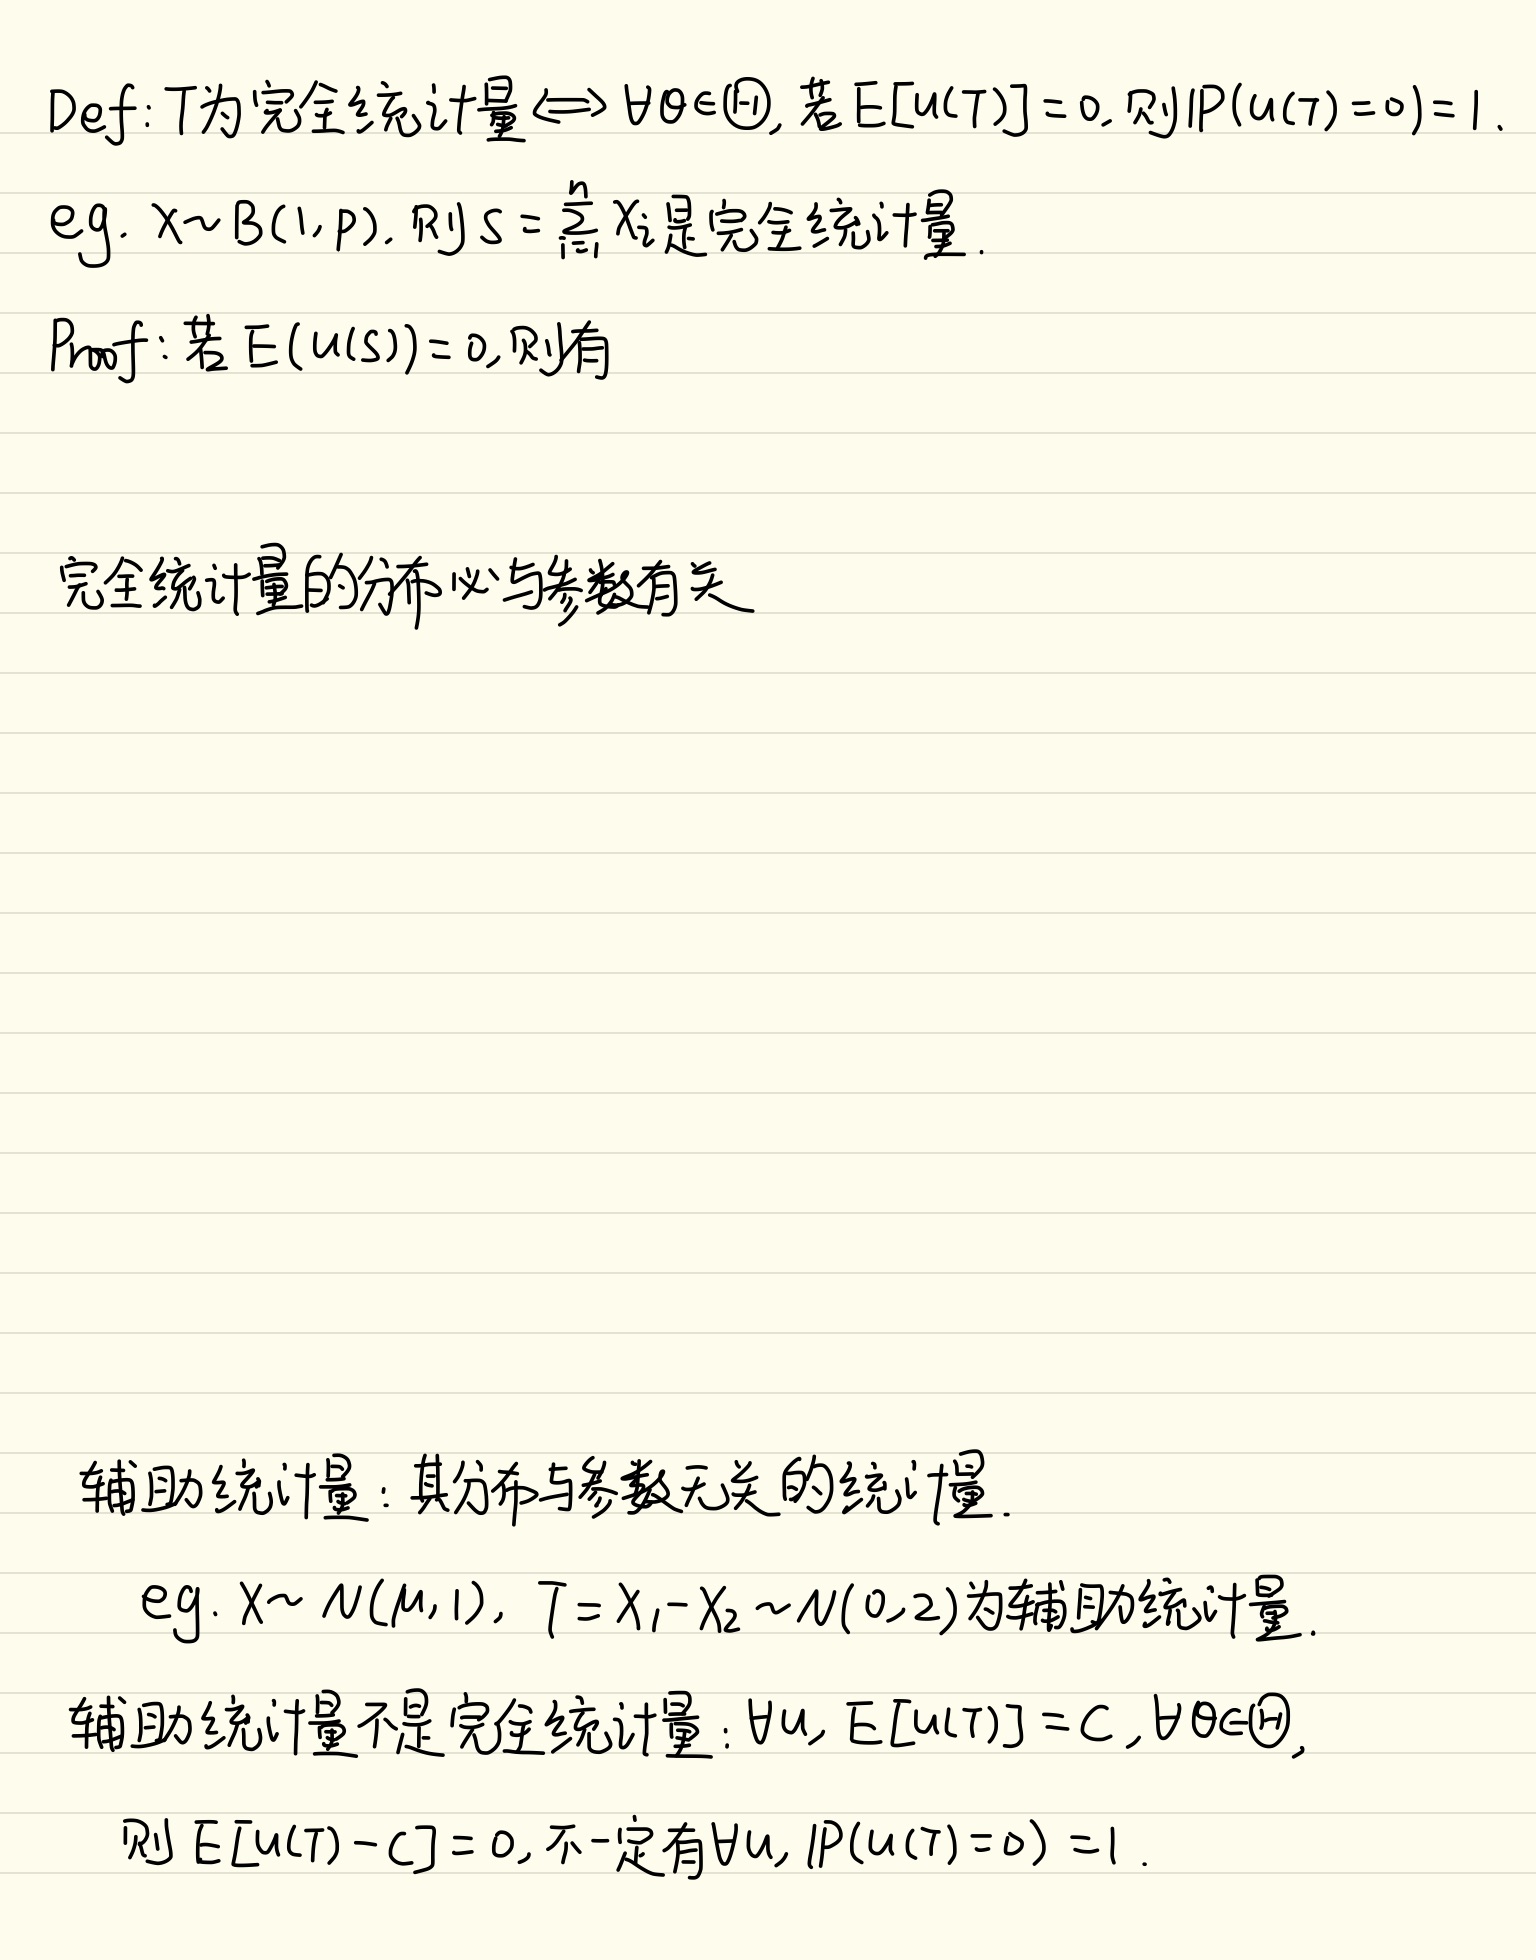 Def: T为完全统计量 ⟺ ∀θ∈Ⓗ, 若 E[u(T)] = 0, 则 ℙ(u(T) = 0) = 1.
eg. X ~ B(1, p). 则 S = ∑_{i=1}^{n} X_i 是完全统计量.
Proof: 若 E(u(S)) = 0, 则有
完全统计量的分布必与参数有关
辅助统计量: 其分布与参数无关的统计量.
eg. X ~ N(μ, 1), T = X₁ - X₂ ~ N(0, 2) 为辅助统计量.
辅助统计量不是完全统计量: ∀u, E[u(T)] = C, ∀θ∈Ⓗ,
则 E[u(T) - C] = 0, 不一定有∀u, ℙ(u(T) = 0) = 1.